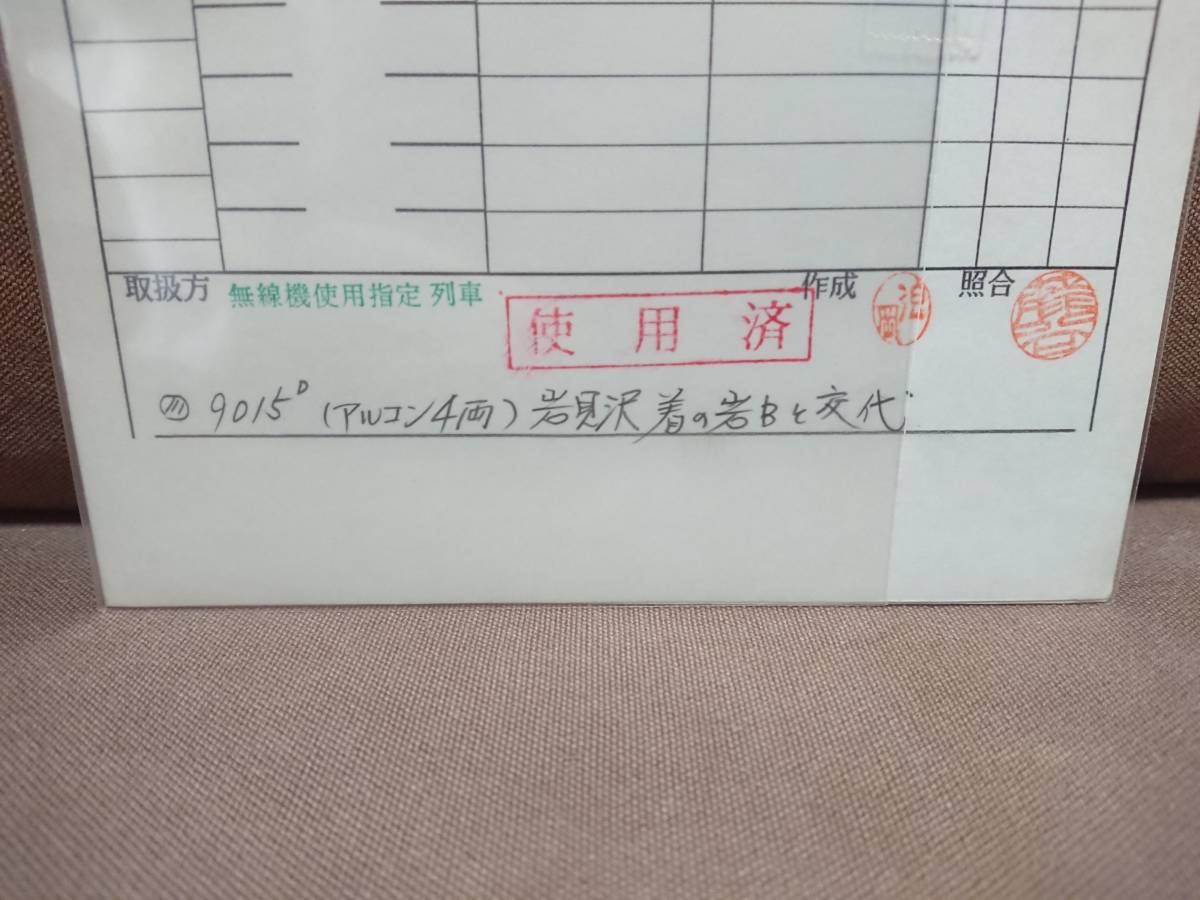 取扱方 無線機使用指定 列車 作成 照合
使用済
9015D (アルコン4両) 岩見沢着の岩Bと交代